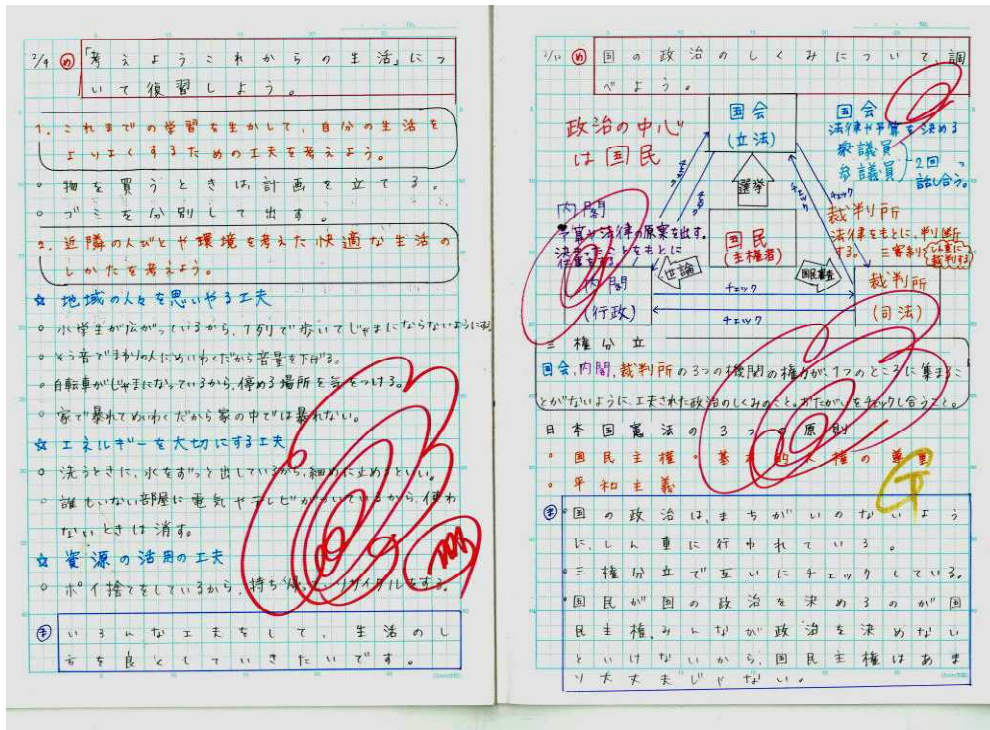 2/9 め 「考えようこれからの生活」につ
いて復習しよう。
1. これまでの学習を生かして、自分の生活を
よりよくするための工夫を考えよう。
○ 物を買うときは計画を立てる。
○ ゴミを分別して出す。
2. 近隣の人びとや環境を考えた快適な生活の
しかたを考えよう。
☆ 地域の人々を思いやる工夫
○ 小学生が広がっているから、1列で歩いてじゃまにならないように
○ そう音でまわりの人にめいわくだから音量を下げる。
○ 自転車がじゃまになっているから、停める場所を気をつける。
○ 家で暴れてめいわくだから家の中では暴れない。
☆ エネルギーを大切にする工夫
○ 洗うときに、水をずっと出しているから、細めに止めるといい。
○ 誰もいない部屋に電気やテレビがついているから、使わ
ないときは消す。
☆ 資源の活用の工夫
○ ポイ捨てをしているから、持ち帰 リサイクルをする。
ま いろんな工夫をして、生活のし
方を良くしていきたいです。
め 国の政治のしくみについて、調
べよう。
政治の中心
は国民
国会
(立法)
国会
法律や予算を決める
衆議員
参議員
2回
話し合う。
チェック
チェック
チェック
選挙
内閣
予算や法律の原案を出す。
国民
(主権者)
裁判所
法律をもとに、判断
する。三審制
世論
国民審査
内閣
(行政)
チェック
チェック
裁判所
(司法)
三権分立
国会、内閣、裁判所の3つの機関の権力が、1つのところに集まるこ
とがないように、工夫された政治のしくみのこと。おたがいをチェックし合うこと。
日本国憲法の3つの原則
○ 国民主権 ○ 基本的人権の尊重
○ 平和主義
ま ○国の政治は、まちがいのないよう
に、しん重に行われている。
○三権分立で互いにチェックしている。
○国民が国の政治を決めるのが国
民主権。みんなが政治を決めない
といけないから、国民主権はあま
り大丈夫じゃない。